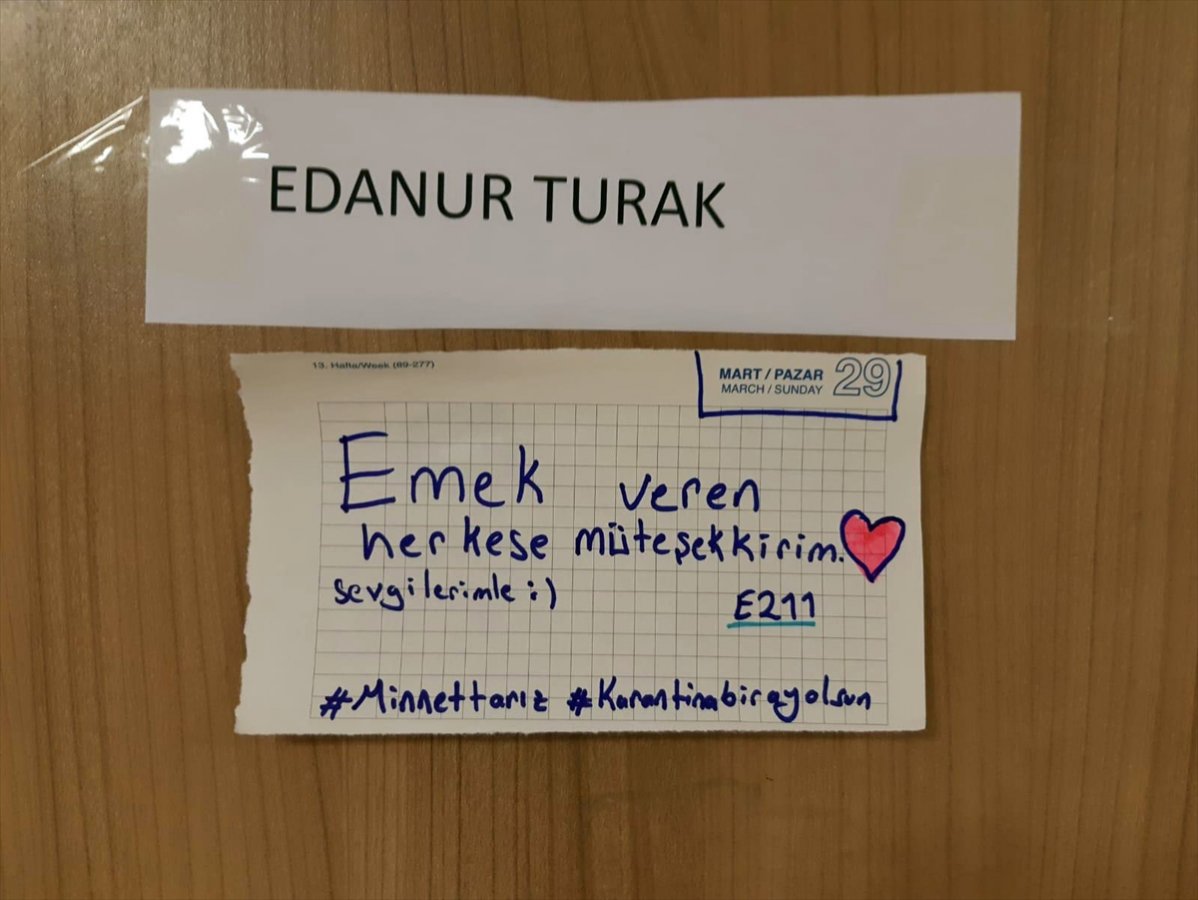 EDANUR TURAK
13. Hafta/Week (89-277)
MART / PAZAR 29
MARCH / SUNDAY
Emek veren
herkese müteşekkirim.
sevgilerimle :)
E211
#Minnettarız #Karantinabirayolsun